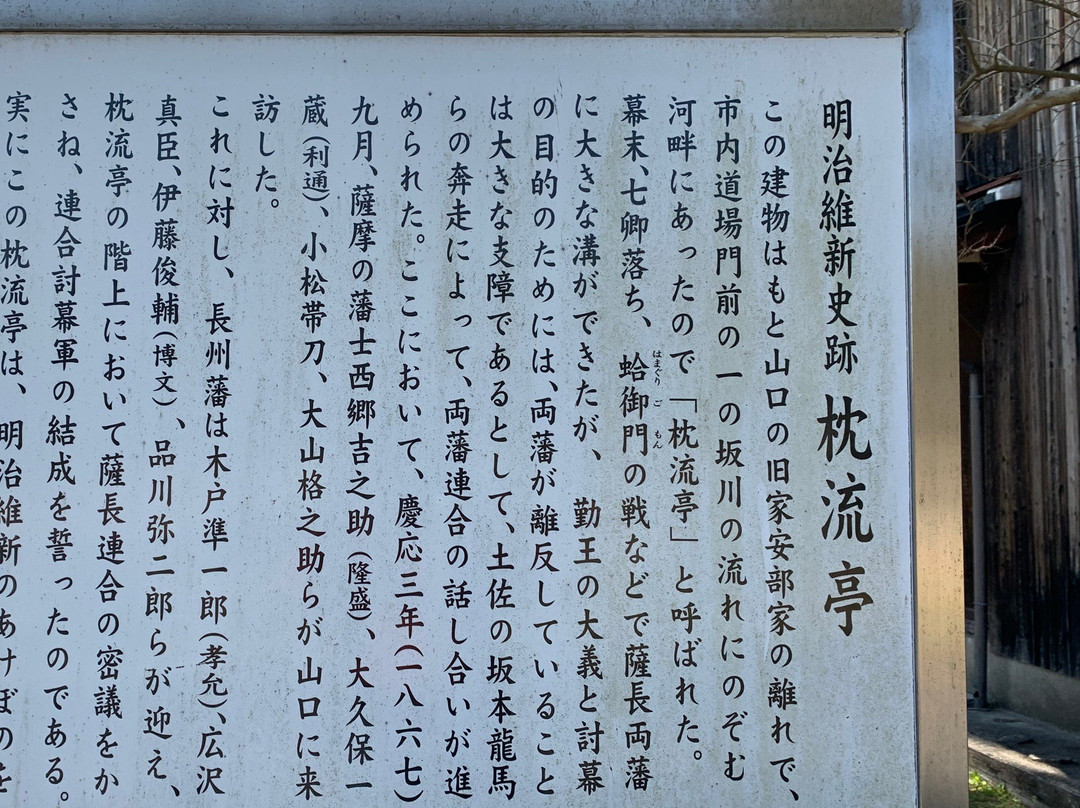 明治維新史跡 枕流亭
この建物はもと山口の旧家安部家の離れで、
市内道場門前の一の坂川の流れにのぞむ
河畔にあったので「枕流亭」と呼ばれた。
幕末、七卿落ち、蛤御門の戦などで薩長両藩
はまぐりごもん
に大きな溝ができたが、勤王の大義と討幕
の目的のためには、両藩が離反していること
は大きな支障であるとして、土佐の坂本龍馬
らの奔走によって、両藩連合の話し合いが進
められた。ここにおいて、慶応三年(一八六七)
九月、薩摩の藩士西郷吉之助(隆盛)、大久保一
蔵(利通)、小松帯刀、大山格之助らが山口に来
訪した。
これに対し、長州藩は木戸準一郎(孝允)、広沢
真臣、伊藤俊輔(博文)、品川弥二郎らが迎え、
枕流亭の階上において薩長連合の密議をか
さね、連合討幕軍の結成を誓ったのである。
実にこの枕流亭は、明治維新のあけぼのを